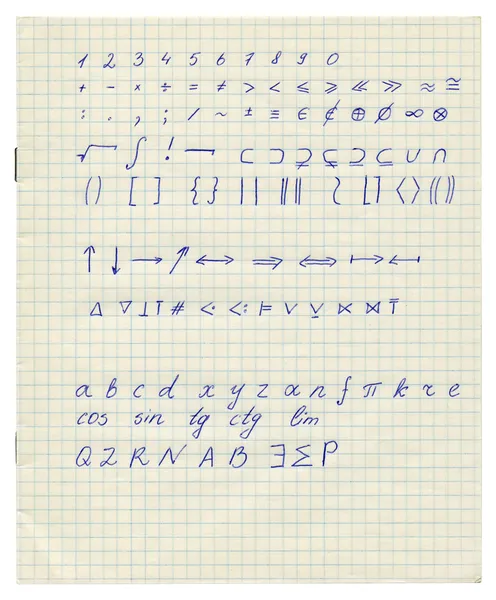 1 2 3 4 5 6 7 8 9 0
+ − × ÷ = ≠ > < ≤ ≥ ≪ ≫ ≈ ≅
: . , ; / ~ ± ≡ ∈ ∉ ⊕ ∅ ∞ ⊗
√ ∫ ! — ⊂ ⊃ ⊋ ⊊ ⊇ ⊆ ∪ ∩
( ) [ ] { } | | || || ⌊ ] ⟨ ⟩ (( ))
↑ ↓ → ↗ ↔ ⇒ ⇔ ↦ ↤
∆ ∇ ⊥ ⊤ # <· <: ⊨ ∨ ⊻ ⋉ ⋈
a b c d x y z α n f π k r e
cos sin tg ctg lim
Q Z R N A B ∃ Σ P